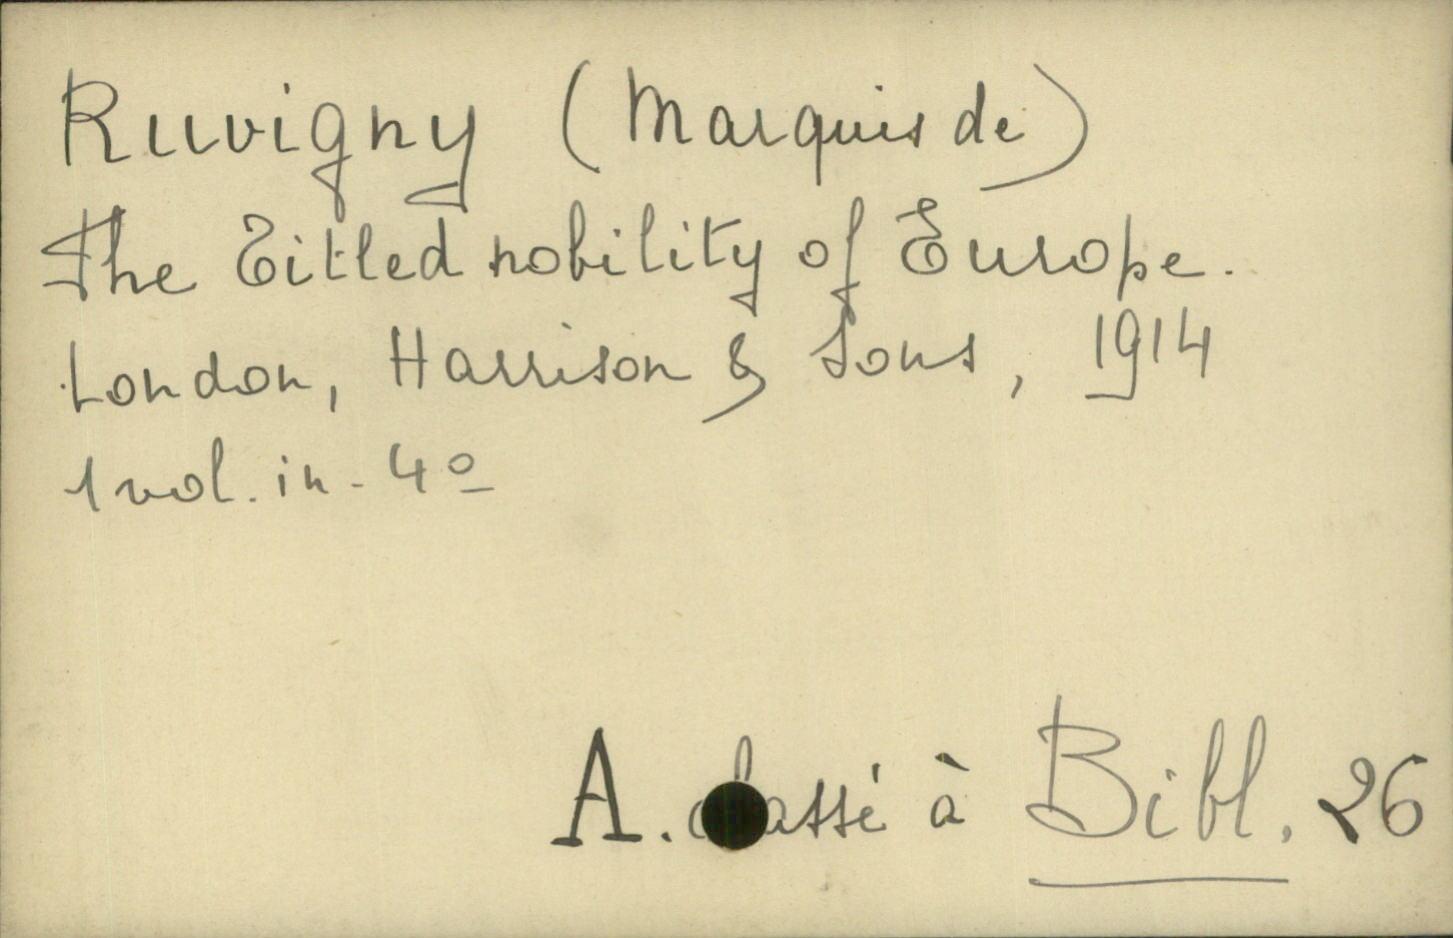 Ruvigny (Marquis de)
The Titled nobility of Europe.
London, Harrison & Sons, 1914
1 vol. in-4º
A. classé à Bibl. 26